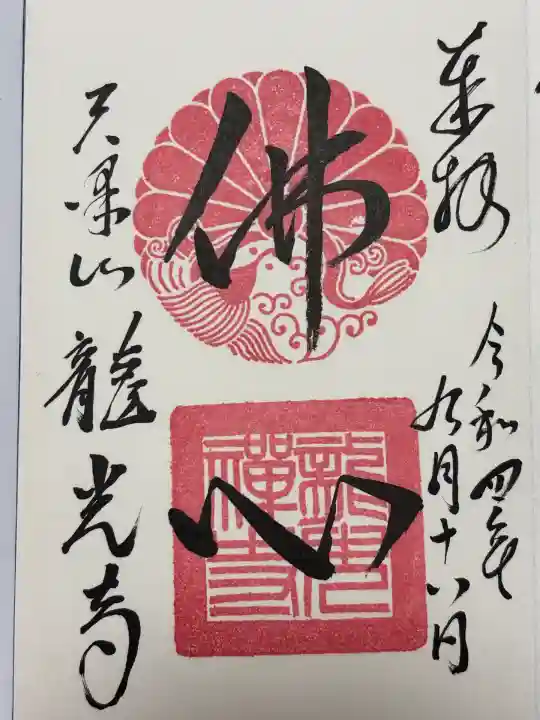 奉拝
令和四年
九月十八日
佛心
龍光禅寺
天澤山 龍光寺